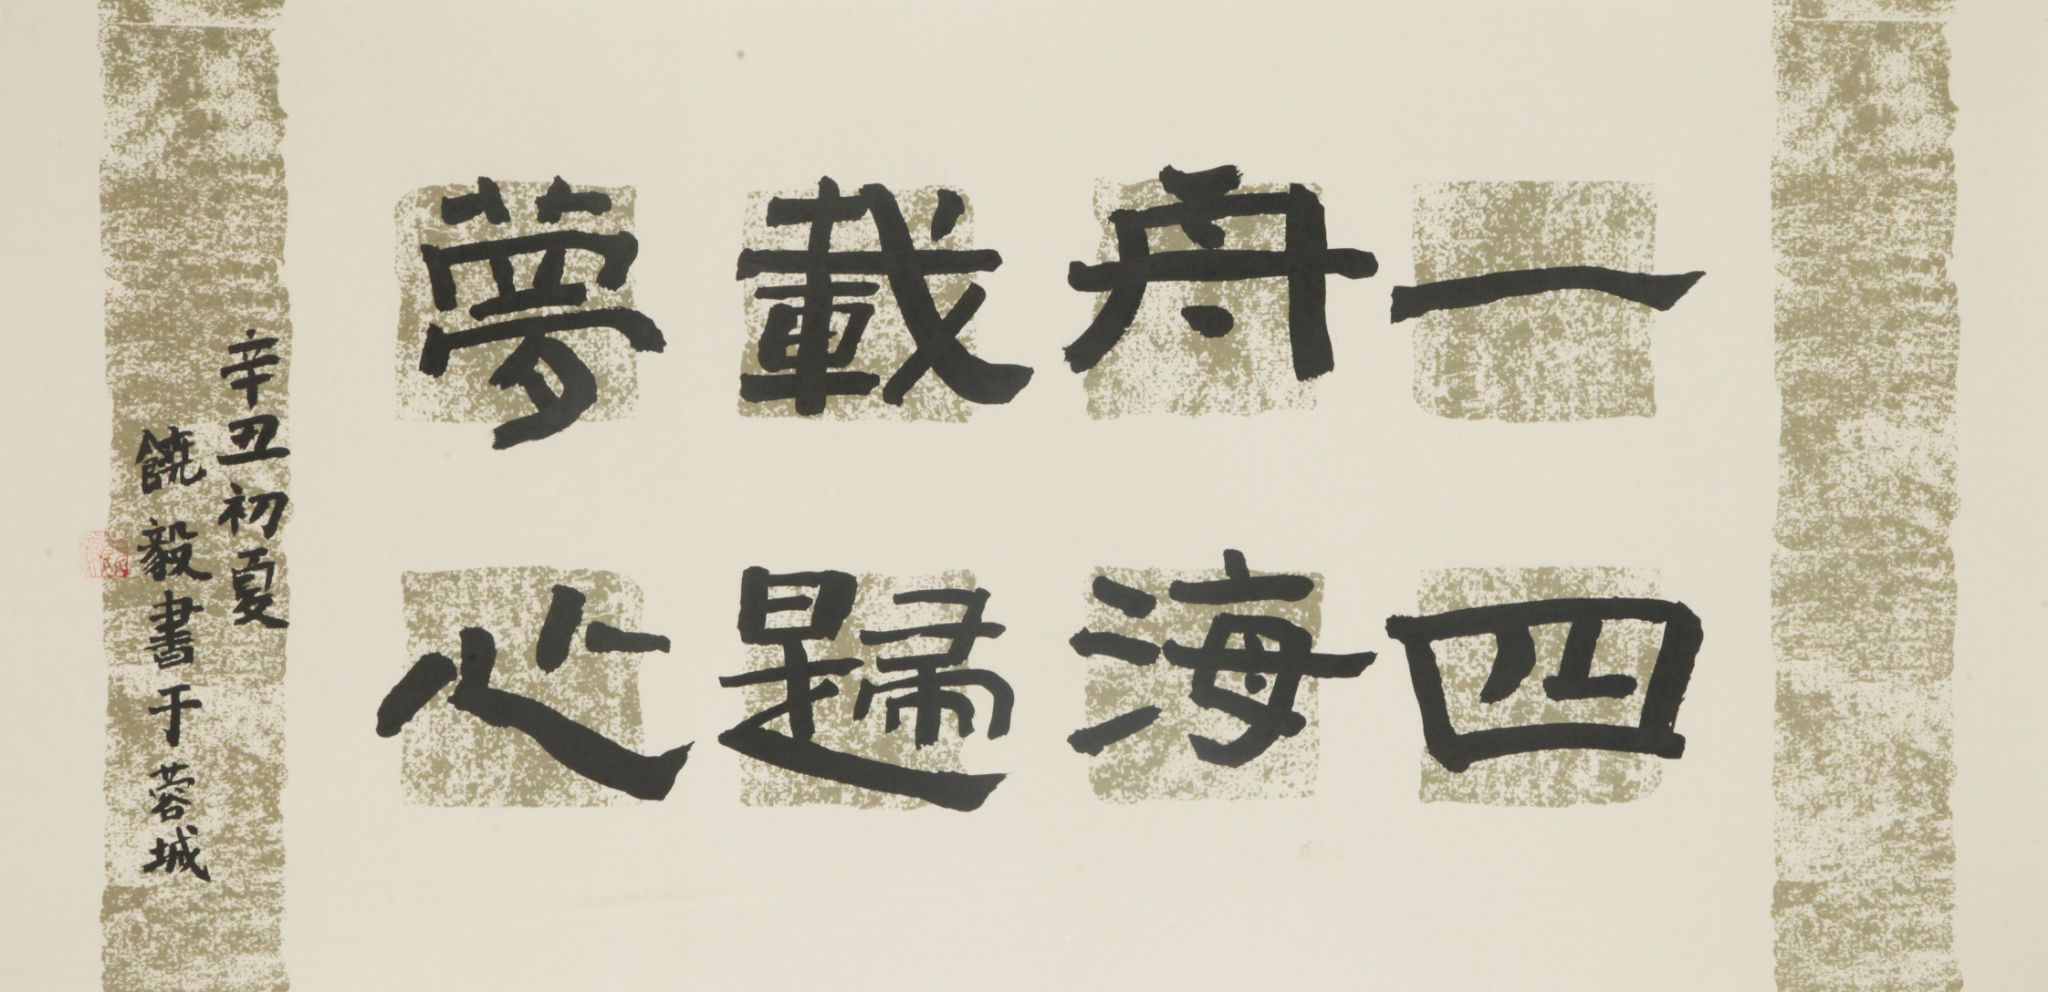 一舟載夢
四海歸心
辛丑初夏
饒毅書于蓉城